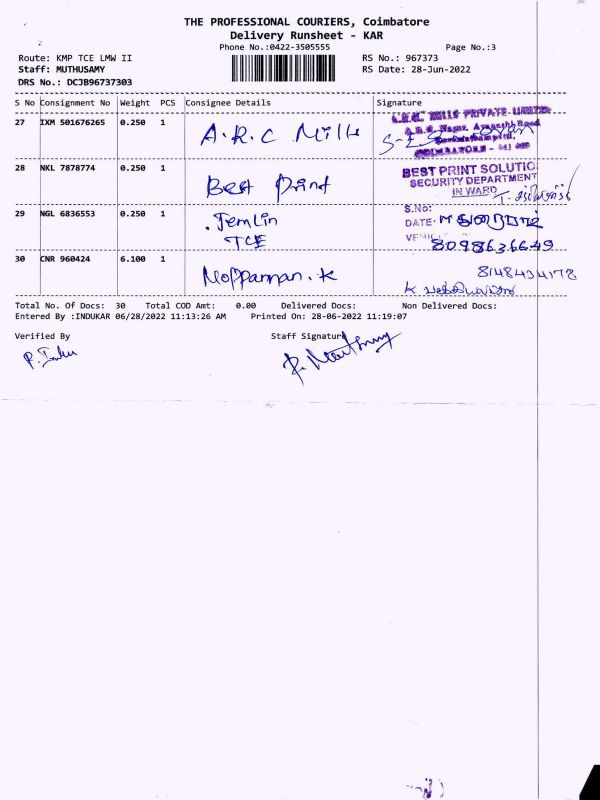 THE PROFESSIONAL COURIERS, Coimbatore
Delivery Runsheet - KAR
Phone No.:0422-3505555 Page No.:3
Route: KMP TCE LMW II RS No.: 967373
Staff: MUTHUSAMY RS Date: 28-Jun-2022
DRS No.: DCJB96737303
S No Consignment No Weight PCS Consignee Details Signature
27 IXM 501676265 0.250 1 A.R.C Mills
MILLS PRIVATE LIMITED
COIMBATORE - 641
28 NKL 7878774 0.250 1 Best Print
BEST PRINT SOLUTIO
SECURITY DEPARTMENT
IN WARD
29 NGL 6836553 0.250 1 Jemlin
TCE
S.No:
DATE:
8098636649
30 CNR 960424 6.100 1
8148434178
Total No. Of Docs: 30 Total COD Amt: 0.00 Delivered Docs: Non Delivered Docs:
Entered By :INDUKAR 06/28/2022 11:13:26 AM Printed On: 28-06-2022 11:19:07
Verified By Staff Signature
P. Indu